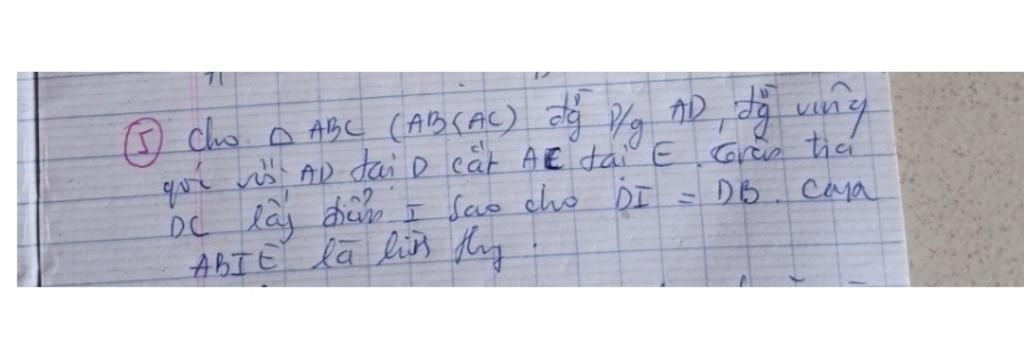 ⑤ Cho △ ABC (AB<AC) đg p/g AD, đg vuông
góc với AD tại D cắt AC tại E. Trên tia
DC lấy điểm I sao cho DI = DB. Cm
ABIE là hình thg.